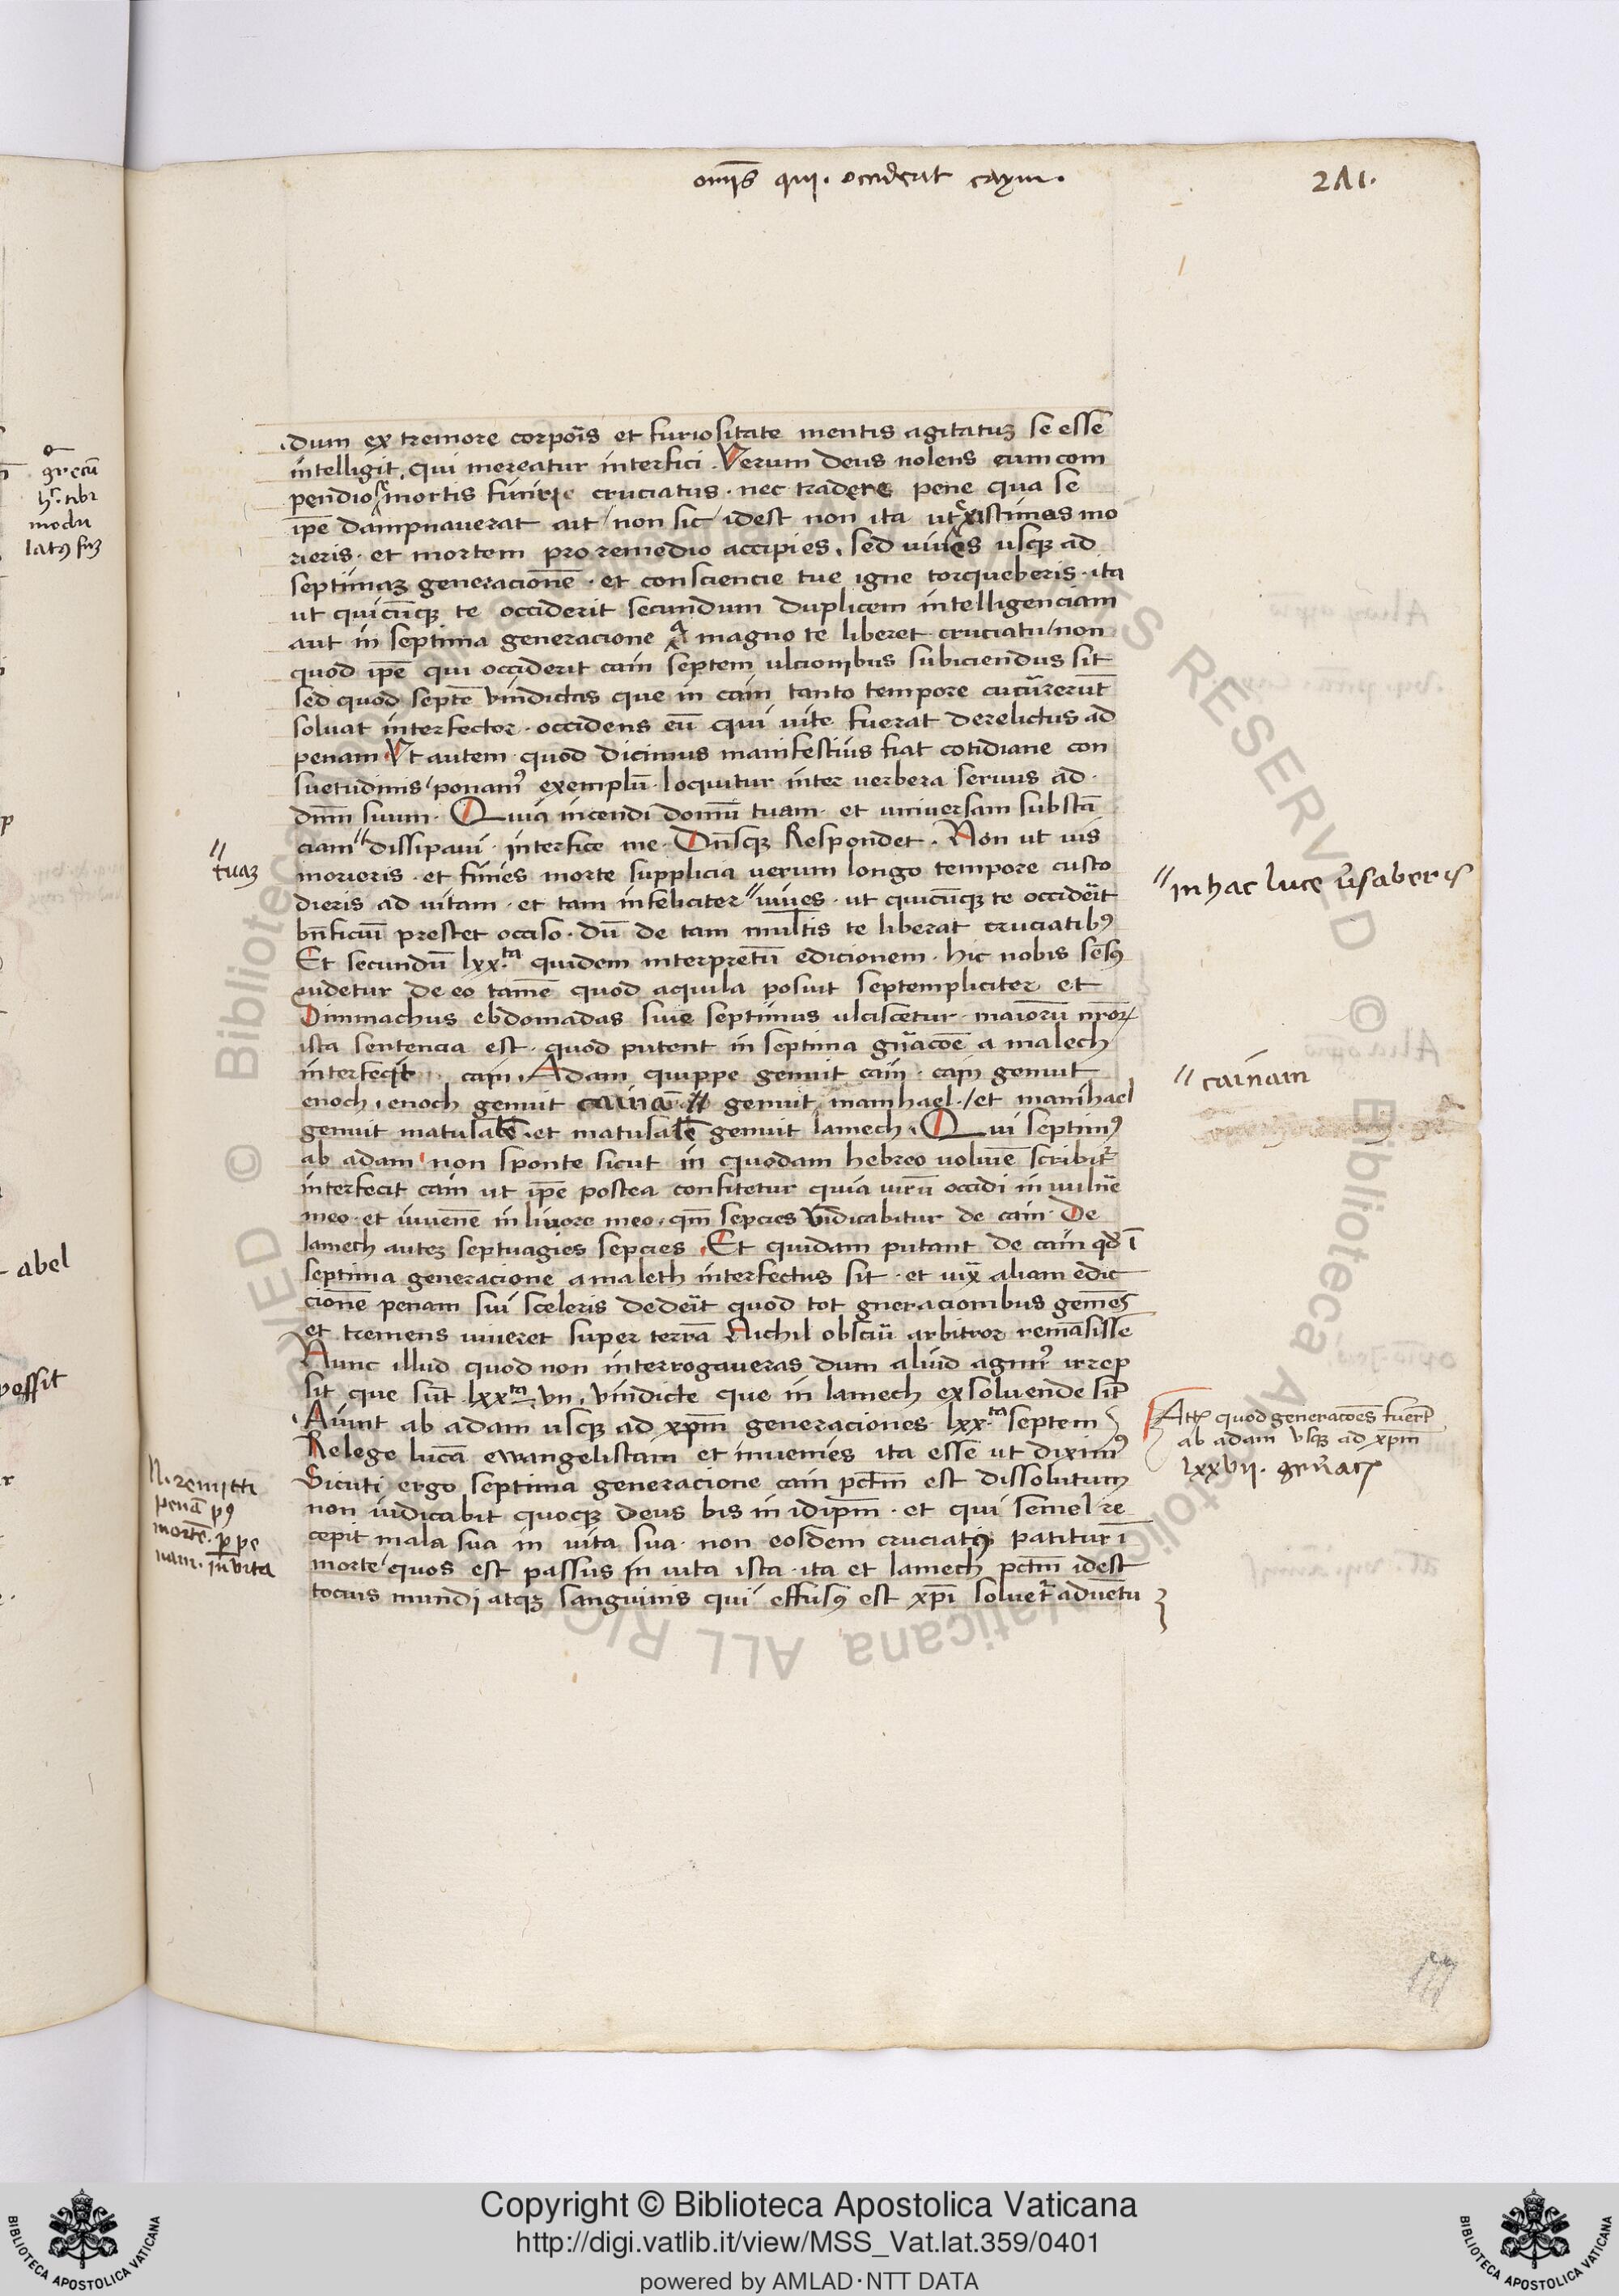 omīs qui. occiderat caym.
211.
dum ex tremore corpoīs et furiositate mentis agitatuʒ se esse
intelligit, qui mereatur interfici. Verum deus nolens eum com
pendio mortis finire cruciatus. nec tradere pene qua se
ip̄e dampnauerat ait / non sic / idest non ita ut existimas mo
rieris. et mortem pro remedio accipies, sed uiues usqʒ ad
septimaʒ generacionē. et consciencie tue igne torqueberis. ita
ut quicūqʒ te occiderit secundum duplicem intelligenciam
aut in septima generacione a magno te liberet cruciatu / non
quod ip̄e qui occiderit cain septem ulcionibus subiciendus sit
sed quod septē vindictas que in cain tanto tempore cucurrerūt
soluat interfector. occidens eū qui uite fuerat derelictus ad
penam. Vt autem quod dicimus manifestius fiat cotidiane con
suetudinis / ponamꝰ exemplū. loquitur inter verbera seruus ad
dn̄m suum. Quia incendi domū tuam. et uniuersam substā
ciam dissipaui. interfice me. Dn̄sqʒ Respondet. Non ut uis
tuaʒ
morieris. et finies morte supplicia uerum longo tempore custo
dieris ad uitam. et tam infeliciter uiues. ut quicūqʒ te occiderit
in hac luce v̄saberis
bn̄ficiū prestet occiso. dū de tam multis te liberat cruciatibꝰ
Et secundū lxx.ta quidem interpretū edicionem. hic nobis sēsꝰ
uidetur de eo tamē quod aquila posuit septempliciter et
Simmachus ebdomadas siue septimus ulciscetur. maiorū nr̄oꝝ
ista sentencia est. quod putent in septima gn̄acoē a malech
interfecit cain. Adam quippe genuit cain. cain genuit
cainam
enoch, enoch genuit cainā genuit mamhael. / et manihael
genuit matusalē. et matusalē genuit lamech. Qui septimꝰ
ab adam non sponte sicut in quodam hebreo uoluīe scribit͛
interfecit cain ut ip̄e postea confitetur quia uirū occidi in uulnē
meo. et iuuenē in liuore meo. qm̄ sepcies vindicabitur de cain. De
lamech auteʒ septuagies sepcies. Et quidam putant de cain qd̄ ī
septima generacione a maleth interfectus sit. et iuxͣ aliam edic
cionē penam sui sceleris dederit quod tot gneracionibus gemēs
et tremens uiueret super terrā Nichil obscuū arbitror remāsisse
Nunc illud quod non interrogaueras dum aliud agimꝰ irrep
sit que sūt lxxta vii, vindicte que in lamech exsoluende sīt
Aiunt ab adam usqʒ ad xpm̄ generaciones lxx.ta septem
Relege lucā ewangelistam et inuenies ita esse ut diximꝰ
quod generacōes fuerūt
ab adam vsqʒ ad xpm̄
lxxvii.
Sicuti ergo septima generacione cain pctm̄ est dissolutum
non iudicabit quoqʒ deus bis in idip̄m. et qui semel re
N. remitti
penā pꝰ
mortē. p pe
nam. in vita
cepit mala sua in uita sua. non eosdem cruciatus patitur ī
morte / quos est passus in uita ista. ita et lamech pctm̄ idest
tocius mundi atqʒ sanguinis qui effusꝰ est xp̄i soluet͛ aduētu
grecū
modu
latꝰ
abel
possit
Copyright © Biblioteca Apostolica Vaticana
http://digi.vatlib.it/view/MSS_Vat.lat.359/0401
powered by AMLAD·NTT DATA
BIBLIOTECA APOSTOLICA VATICANA
BIBLIOTECA APOSTOLICA VATICANA
© Biblioteca Apostolica Vaticana ALL RIGHTS RESERVED